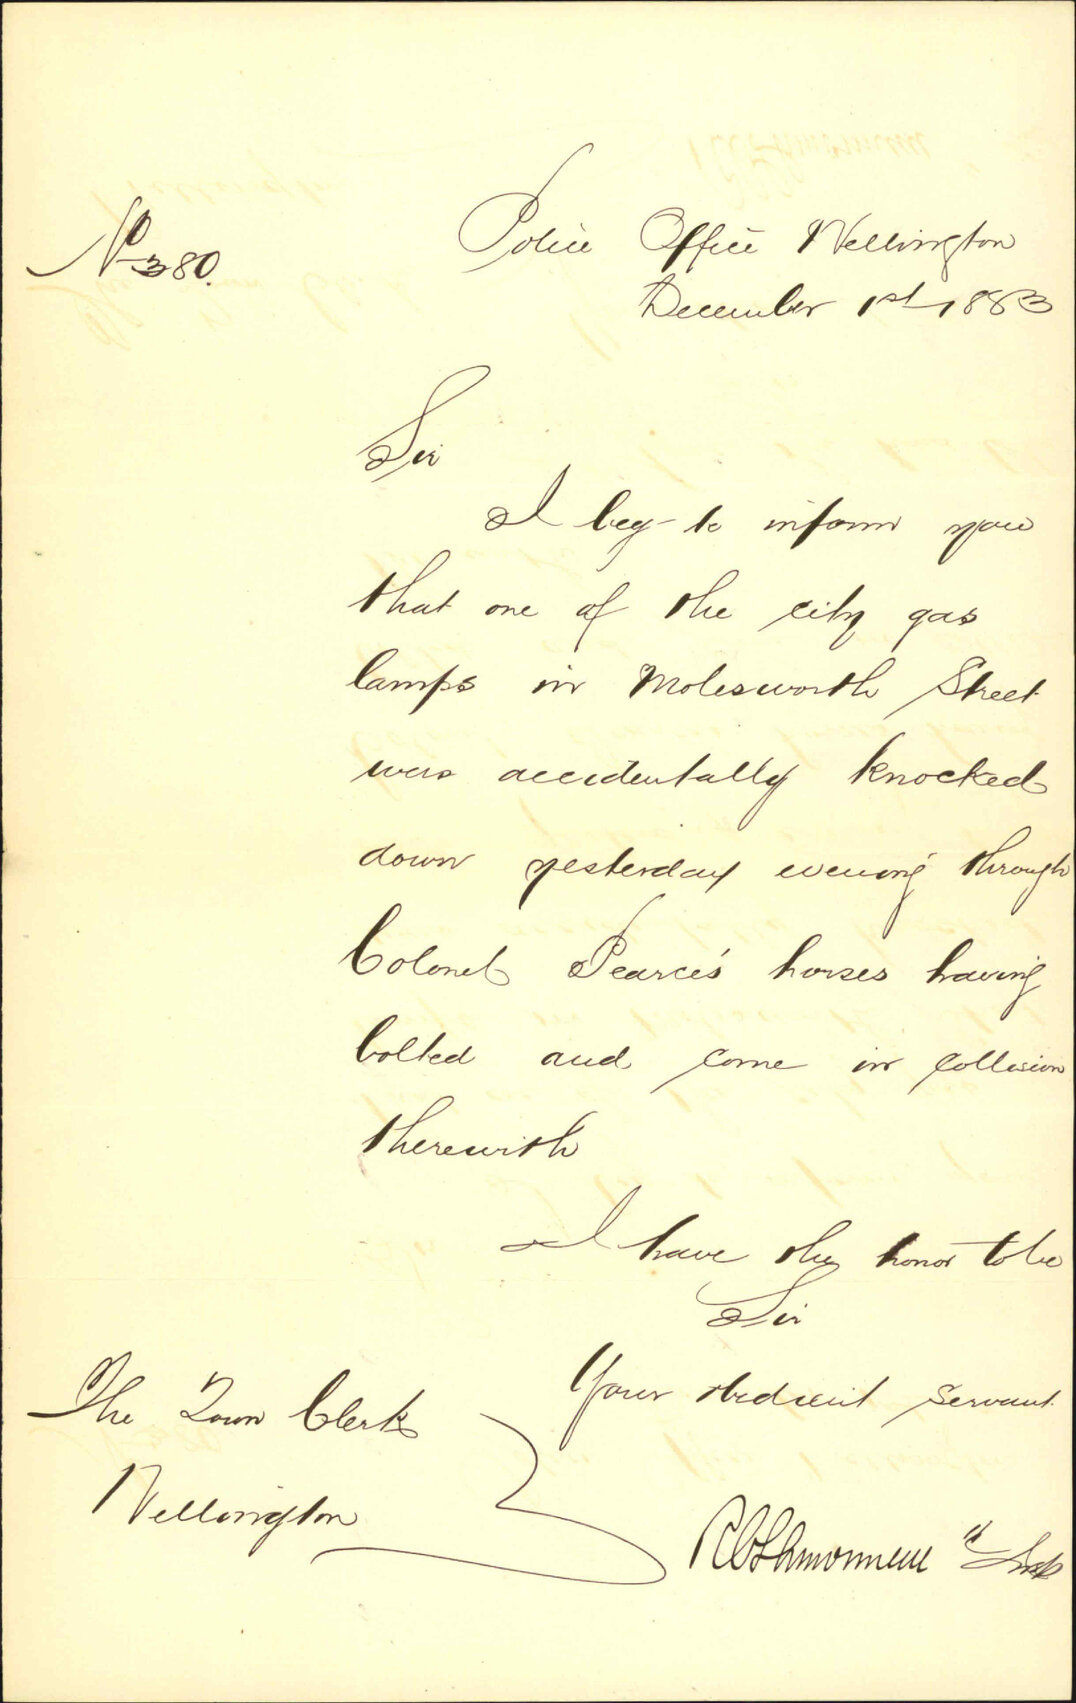 No 380.
Police Office Wellington
December 1st 1883
Sir
I beg to inform you
that one of the city gas
lamps in Molesworth Street
was accidentally knocked
down yesterday evening through
Colonel Pearce's horses having
bolted and come in collision
therewith
I have the honor to be
Sir
Your obedient servant
The Town Clerk
Wellington